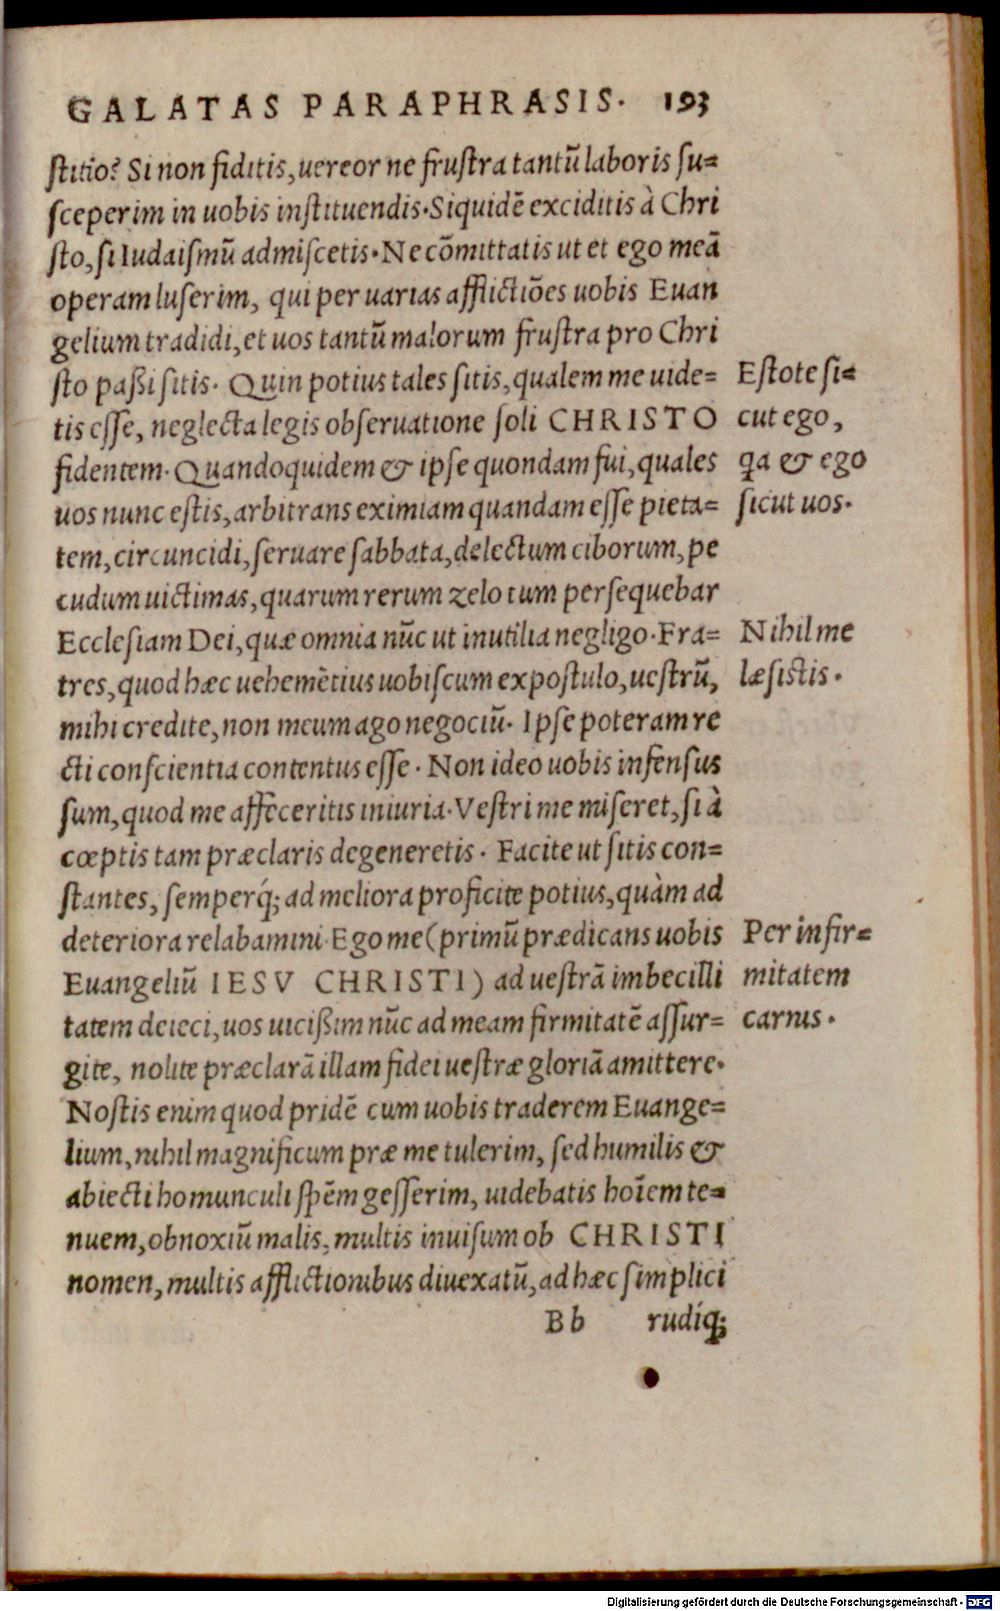 GALATAS PARAPHRASIS. 193
ſtitio? Si non fiditis, uereor ne fruſtra tantũ laboris ſu=
ſceperim in uobis inſtituendis. Siquidẽ exciditis à Chri
ſto, ſi Iudaiſmũ admiſcetis. Ne cõmittatis ut et ego meã
operam luſerim, qui per uarias afflictiões uobis Euan
gelium tradidi, et uos tantũ malorum fruſtra pro Chri
ſto paßi ſitis. Quin potius tales ſitis, qualem me uide=
tis eſſe, neglecta legis obſeruatione ſoli CHRISTO
fidentem. Quandoquidem & ipſe quondam fui, quales
uos nunc eſtis, arbitrans eximiam quandam eſſe pieta=
tem, circuncidi, ſeruare ſabbata, delectum ciborum, pe
cudum uictimas, quarum rerum zelo tum perſequebar
Eccleſiam Dei, quæ omnia nũc ut inutilia negligo. Fra=
tres, quod hæc uehemẽtius uobiſcum expoſtulo, ueſtrũ,
mihi credite, non meum ago negociũ. Ipſe poteram re
cti conſcientia contentus eſſe. Non ideo uobis infenſus
ſum, quod me affeceritis iniuria. Veſtri me miſeret, ſi à
cœptis tam præclaris degeneretis. Facite ut ſitis con=
ſtantes, ſemperq́; ad meliora proficite potius, quàm ad
deteriora relabamini. Ego me (primũ prædicans uobis
Euangeliũ IESV CHRISTI) ad ueſtrã imbecilli
tatem deieci, uos uicißim nũc ad meam firmitatẽ aſſur=
gite, nolite præclarã illam fidei ueſtræ gloriã amittere.
Noſtis enim quod pridẽ cum uobis traderem Euange=
lium, nihil magnificum præ me tulerim, ſed humilis &
abiecti homunculi ſpẽm geſſerim, uidebatis hoĩem te=
nuem, obnoxiũ malis, multis inuiſum ob CHRISTI
nomen, multis afflictionibus diuexatũ, ad hæc ſimplici
Bb rudiq́;
Eſtote ſi=
cut ego,
q̃a & ego
ſicut uos.
Nihil me
læſiſtis.
Per infir=
mitatem
carnis.
Digitalisierung gefördert durch die Deutsche Forschungsgemeinschaft - DFG